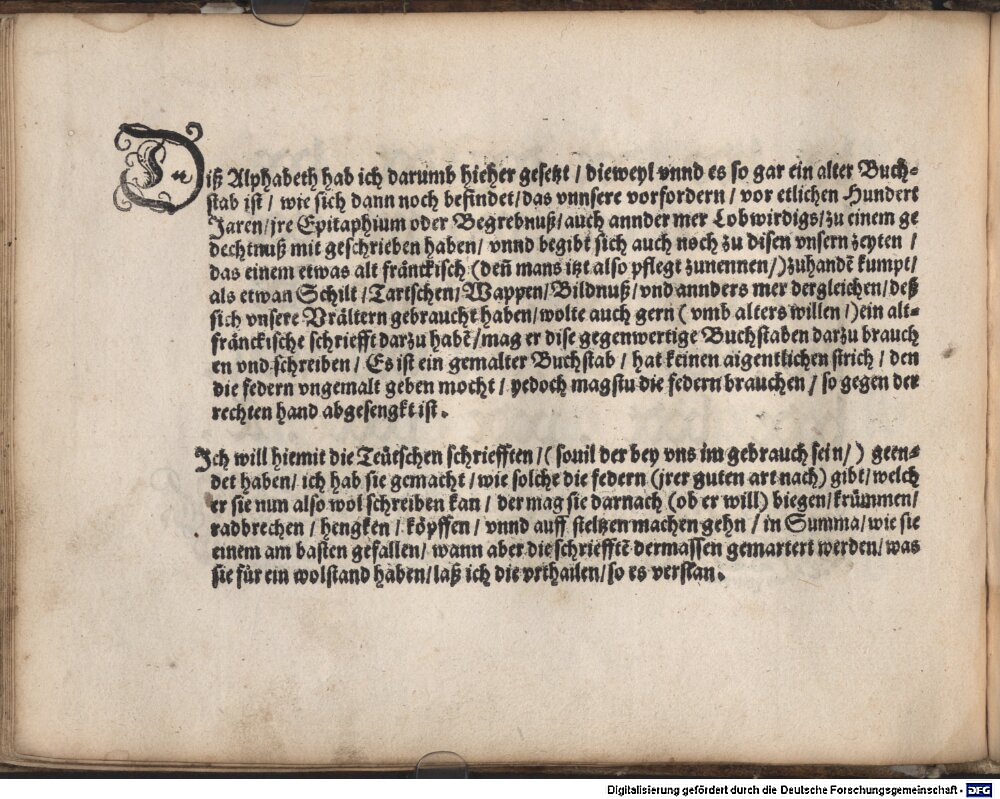 Diß Alphabeth hab ich darumb hieher gesetzt / dieweyl vnnd es so gar ein alter Buch⸗
stab ist / wie sich dann noch befindet / das vnnsere vorfordern / vor etlichen Hundert
Jaren / jre Epitaphium oder Begrebnuß / auch annder mer Lobwirdigs / zu einem ge
dechtnuß mit geschrieben haben / vnnd begibt sich auch noch zu disen vnsern zeyten /
das einem etwas alt fränckisch (den̄ mans itzt also pflegt zunennen /) zuhandē kumpt /
als etwan Schilt / Tartschen / Wappen / Bildnuß / vnd annders mer dergleichen / deß
sich vnsere Vrältern gebraucht haben / wolte auch gern ( vmb alters willen /) ein alt⸗
fränckische schriefft darzu habē / mag er dise gegenwertige Buchstaben darzu brauch
en vnd schreiben / Es ist ein gemalter Buchstab / hat keinen aigentlichen strich / den
die federn vngemalt geben mocht / yedoch magstu die federn brauchen / so gegen der
rechten hand abgesengkt ist.
Ich will hiemit die Teütschen schriefften / ( souil der bey vns im gebrauch sein / ) geen⸗
det haben / ich hab sie gemacht / wie solche die federn (jrer guten art nach) gibt / welch
er sie nun also wol schreiben kan / der mag sie darnach (ob er will) biegen / krümmen /
radbrechen / hengken / köpffen / vnnd auff steltzen machen gehn / in Summa / wie sie
einem am basten gefallen / wann aber die schriefftē dermassen gemartert werden / was
sie für ein wolstand haben / laß ich die vrthailen / so es verstan.
Digitalisierung gefördert durch die Deutsche Forschungsgemeinschaft - DFG